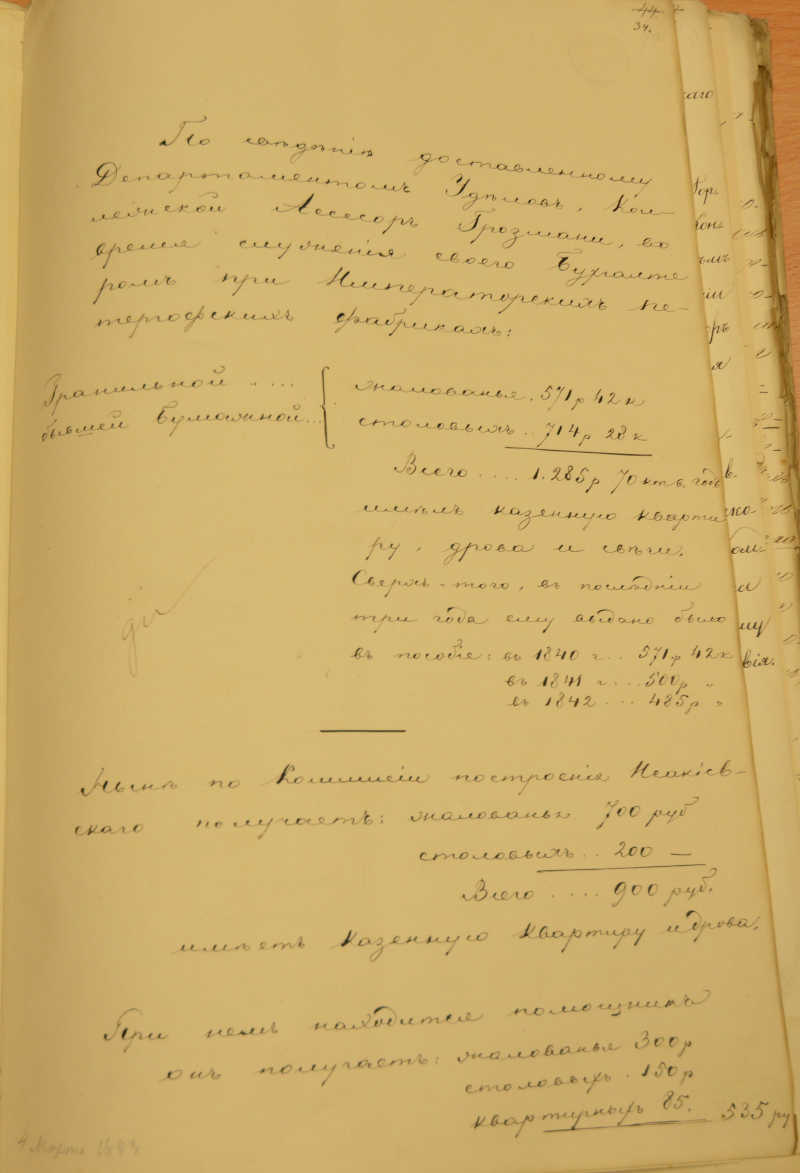 34.
По свѣдѣнію доставленному
Департаментомъ Удѣловъ, Кол-
лежской Ассесоръ Грозманн, во
время служенія своего Бухгалте
ромъ при Императорскихъ Пе-
тергофскихъ фабрикахъ:
Гранильной ....
бывшей Бумажной...
жалованья. 571 р 42 к
столовыхъ.. 714 р 28 к
Всего .... 1.285 р 70 к въ годъ
имѣлъ казенную кварти
ру, дрова и свѣчи.
Сверхъ-того, въ послѣдніи
три года ему выдано было
въ пособіе: въ 1840 г... 571 р 42 к
въ 1841 г.... 500 р "
въ 1842 .... 485 р "
Нынѣ по Коммиссіи построенія Исакіев-
скаго получаетъ: жалованья 700 руб
столовыхъ.. 200 —
Всего .... 900 руб.
имѣетъ казенную квартиру и дрова.
При немъ находится помощникъ
онъ получаетъ: жалованья 300 р
столовыхъ. 150 р
квартирныхъ 85. 535 ру
4 Марта